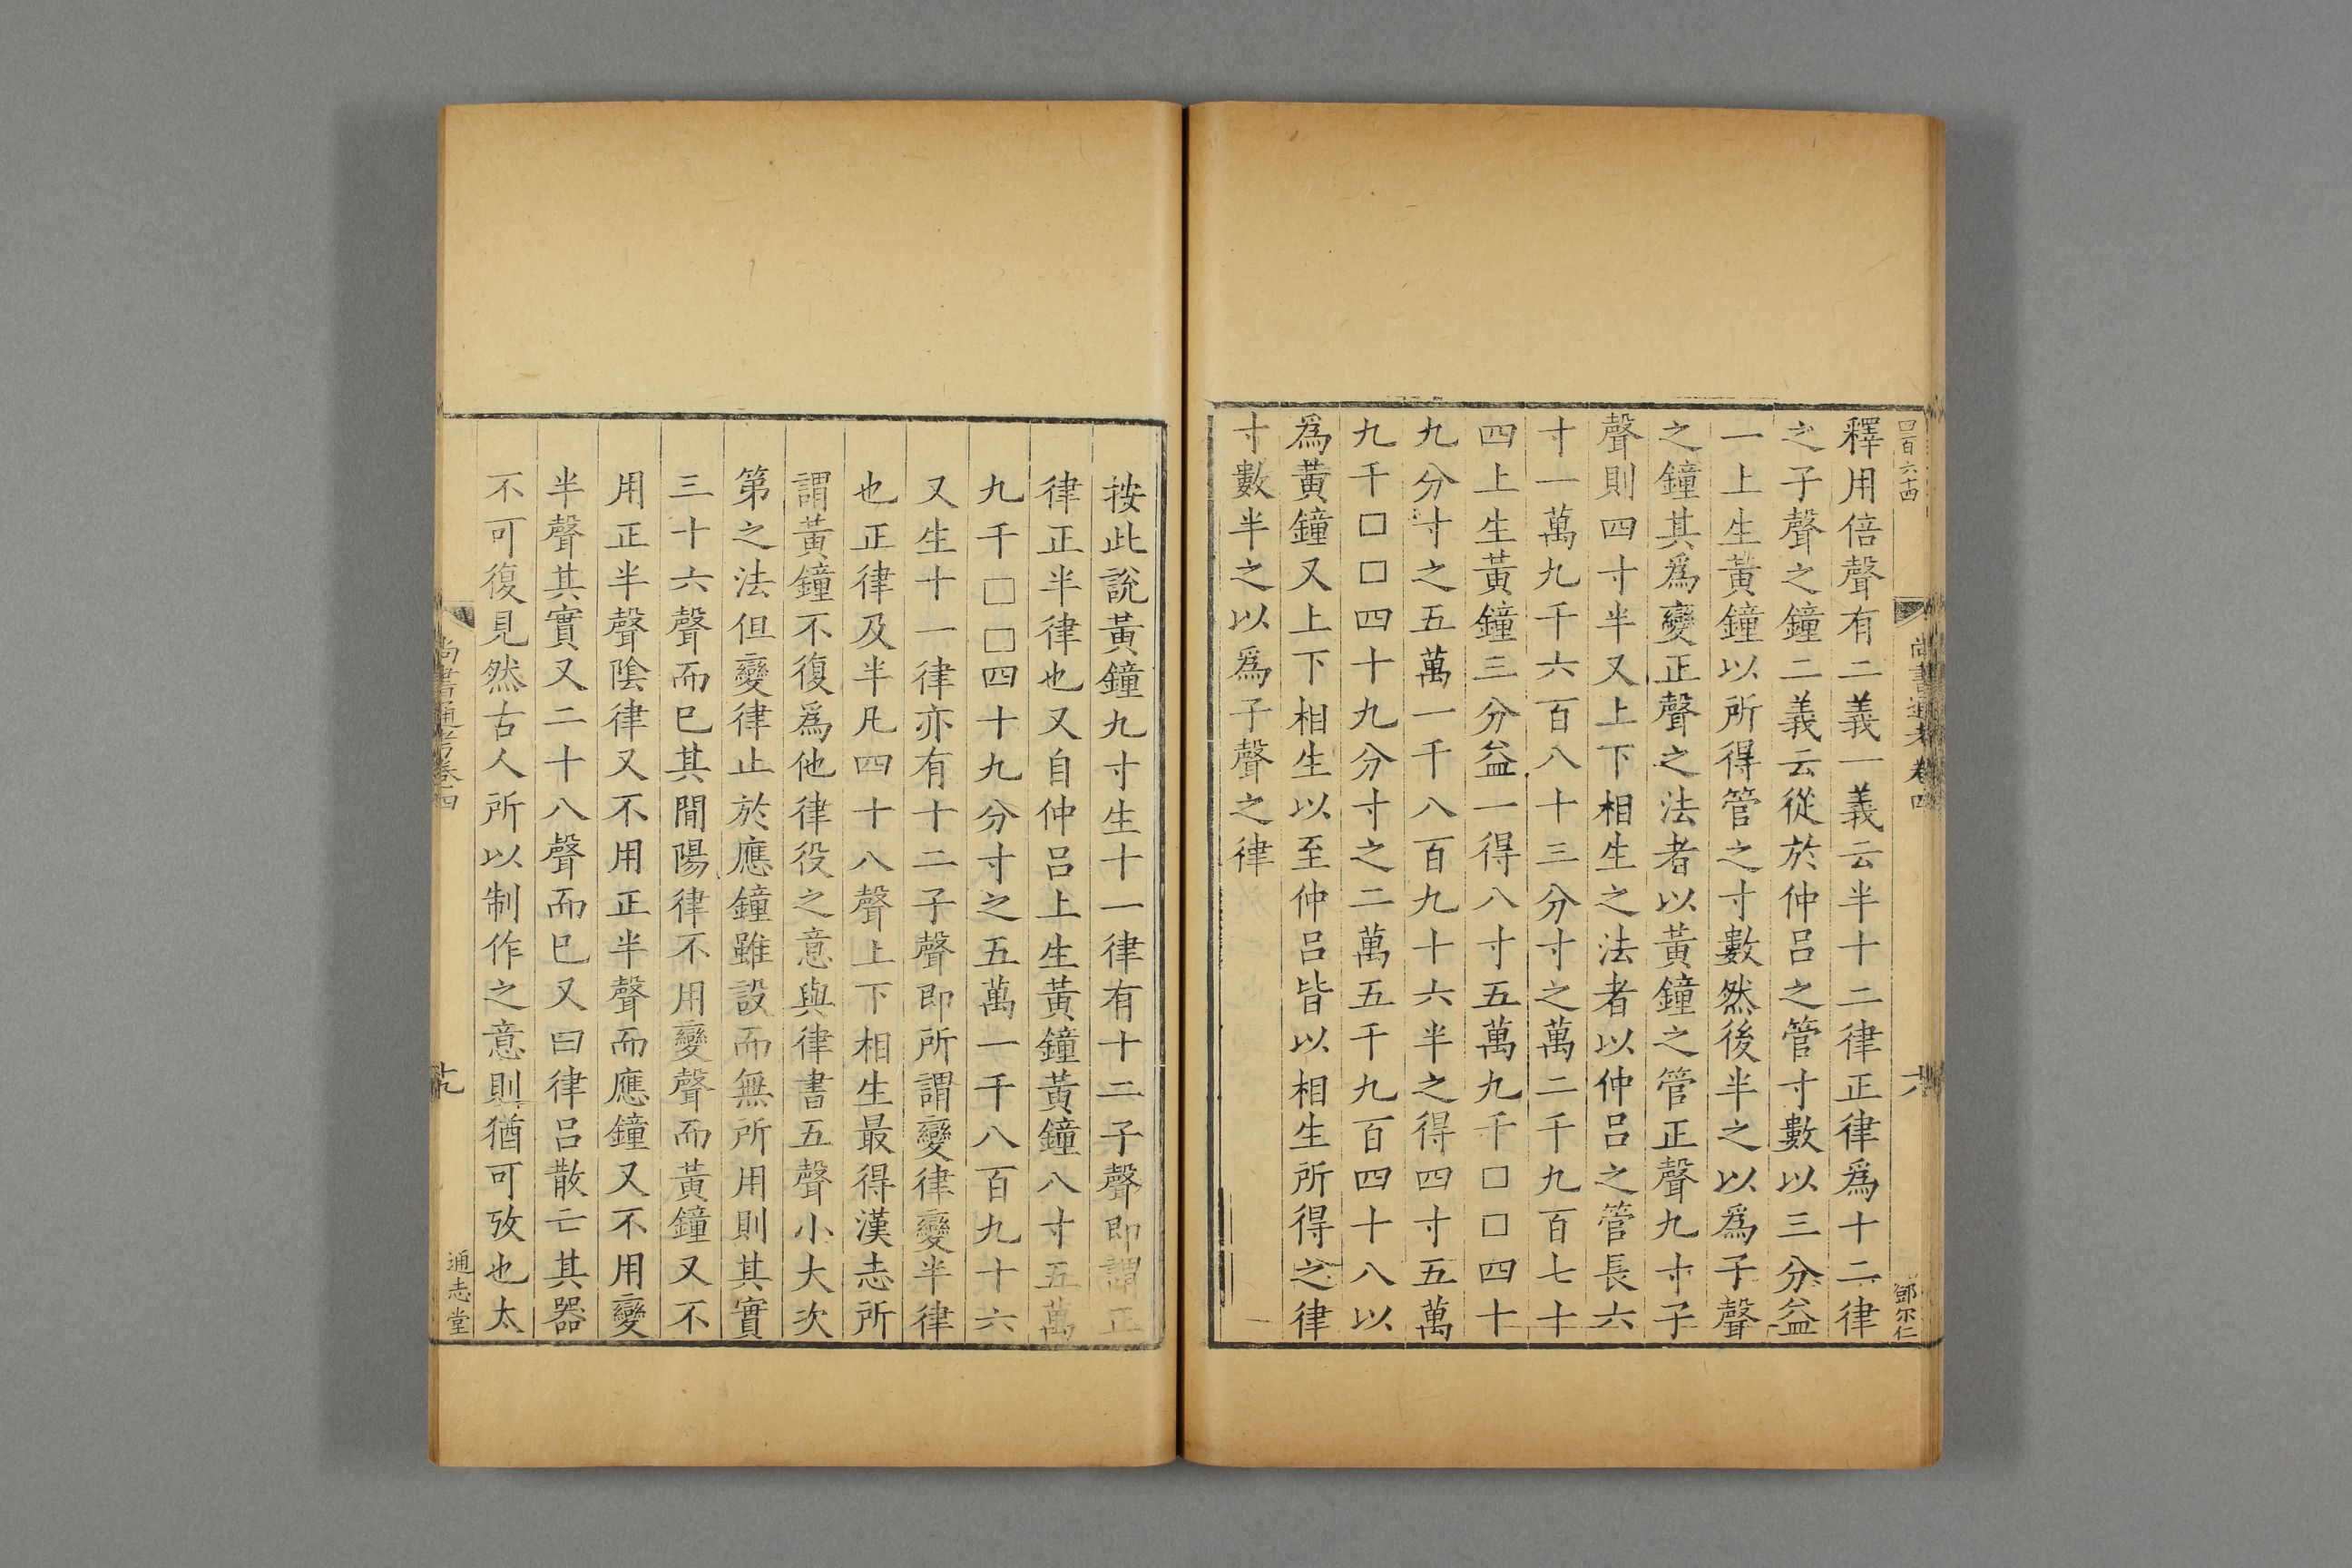 四百六十四
尚書通考卷四
鄧尔仁
釋用倍聲有二義一義云半十二律正律爲十二律
之子聲之鐘二義云從於仲吕之管寸數以三分益
一上生黃鐘以所得管之寸數然後半之以爲子聲
之鐘其爲變正聲之法者以黃鐘之管正聲九寸子
聲則四寸半又上下相生之法者以仲吕之管長六
寸一萬九千六百八十三分寸之萬二千九百七十
四上生黃鐘三分益一得八寸五萬九千□□四十
九分寸之五萬一千八百九十六半之得四寸五萬
九千□□四十九分寸之二萬五千九百四十八以
爲黃鐘又上下相生以至仲吕皆以相生所得之律
寸數半之以爲子聲之律
按此說黃鐘九寸生十一律有十二子聲即謂正
律正半律也又自仲吕上生黃鐘黃鐘八寸五萬
九千□□四十九分寸之五萬一千八百九十六
又生十一律亦有十二子聲即所謂變律變半律
也正律及半凡四十八聲上下相生最得漢志所
謂黃鐘不復爲他律役之意與律書五聲小大次
第之法但變律止於應鐘雖設而無所用則其實
三十六聲而巳其間陽律不用變聲而黃鐘又不
用正半聲陰律又不用正半聲而應鐘又不用變
半聲其實又二十八聲而巳又曰律吕散亡其器
不可復見然古人所以制作之意則猶可攷也太
尚書通考卷四
十九
通志堂